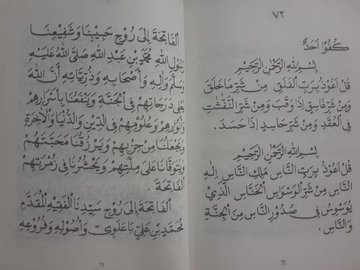 ٧٢
كُفُوًا اَحَدٌ
بِسْمِ اللهِ الرَّحْمٰنِ الرَّحِيْمِ
قُلْ اَعُوْذُ بِرَبِّ الْفَلَقِ مِنْ شَرِّ مَا خَلَقَ
وَمِنْ شَرِّ غَاسِقٍ اِذَا وَقَبَ وَمِنْ شَرِّ النَّفّٰثٰتِ
فِي الْعُقَدِ وَمِنْ شَرِّ حَاسِدٍ اِذَا حَسَدَ.
بِسْمِ اللهِ الرَّحْمٰنِ الرَّحِيْمِ
قُلْ اَعُوْذُ بِرَبِّ النَّاسِ مَلِكِ النَّاسِ اِلٰهِ
النَّاسِ مِنْ شَرِّ الْوَسْوَاسِ الْخَنَّاسِ الَّذِيْ
يُوَسْوِسُ فِي صُدُوْرِ النَّاسِ مِنَ الْجِنَّةِ
وَالنَّاسِ.
اَلْفَاتِحَةَ اِلَى رُوْحِ حَبِيْبِنَا وَشَفِيْعِنَا
رَسُوْلِ اللهِ مُحَمَّدِ بْنِ عَبْدِ اللهِ صَلَّى اللهُ عَلَيْهِ
وَسَلَّمَ وَاٰلِهِ وَاَصْحَابِهِ وَذُرِّيَّاتِهِ اَنَّ اللهَ
يُعْلِي دَرَجَاتِهِمْ فِي الْجَنَّةِ وَيَنْفَعُنَا بِاَسْرَارِهِمْ
وَاَنْوَارِهِمْ وَعُلُوْمِهِمْ فِي الدِّيْنِ وَالدُّنْيَا وَالْاٰخِرَةِ
وَيَجْعَلُنَا مِنْ حِزْبِهِمْ وَيَرْزُقُنَا مَحَبَّتَهُمْ
وَيَتَوَفَّانَا عَلَى مِلَّتِهِمْ وَيَحْشُرُنَا فِي زُمْرَتِهِمْ
اَلْفَاتِحَةَ.
اَلْفَاتِحَةَ اِلَى رُوْحِ سَيِّدِنَا الْفَقِيْهِ الْمُقَدَّمِ
مُحَمَّدِ بْنِ عَلِيْ بَاعَلَوِيْ وَاُصُوْلِهِ وَفُرُوْعِهِ